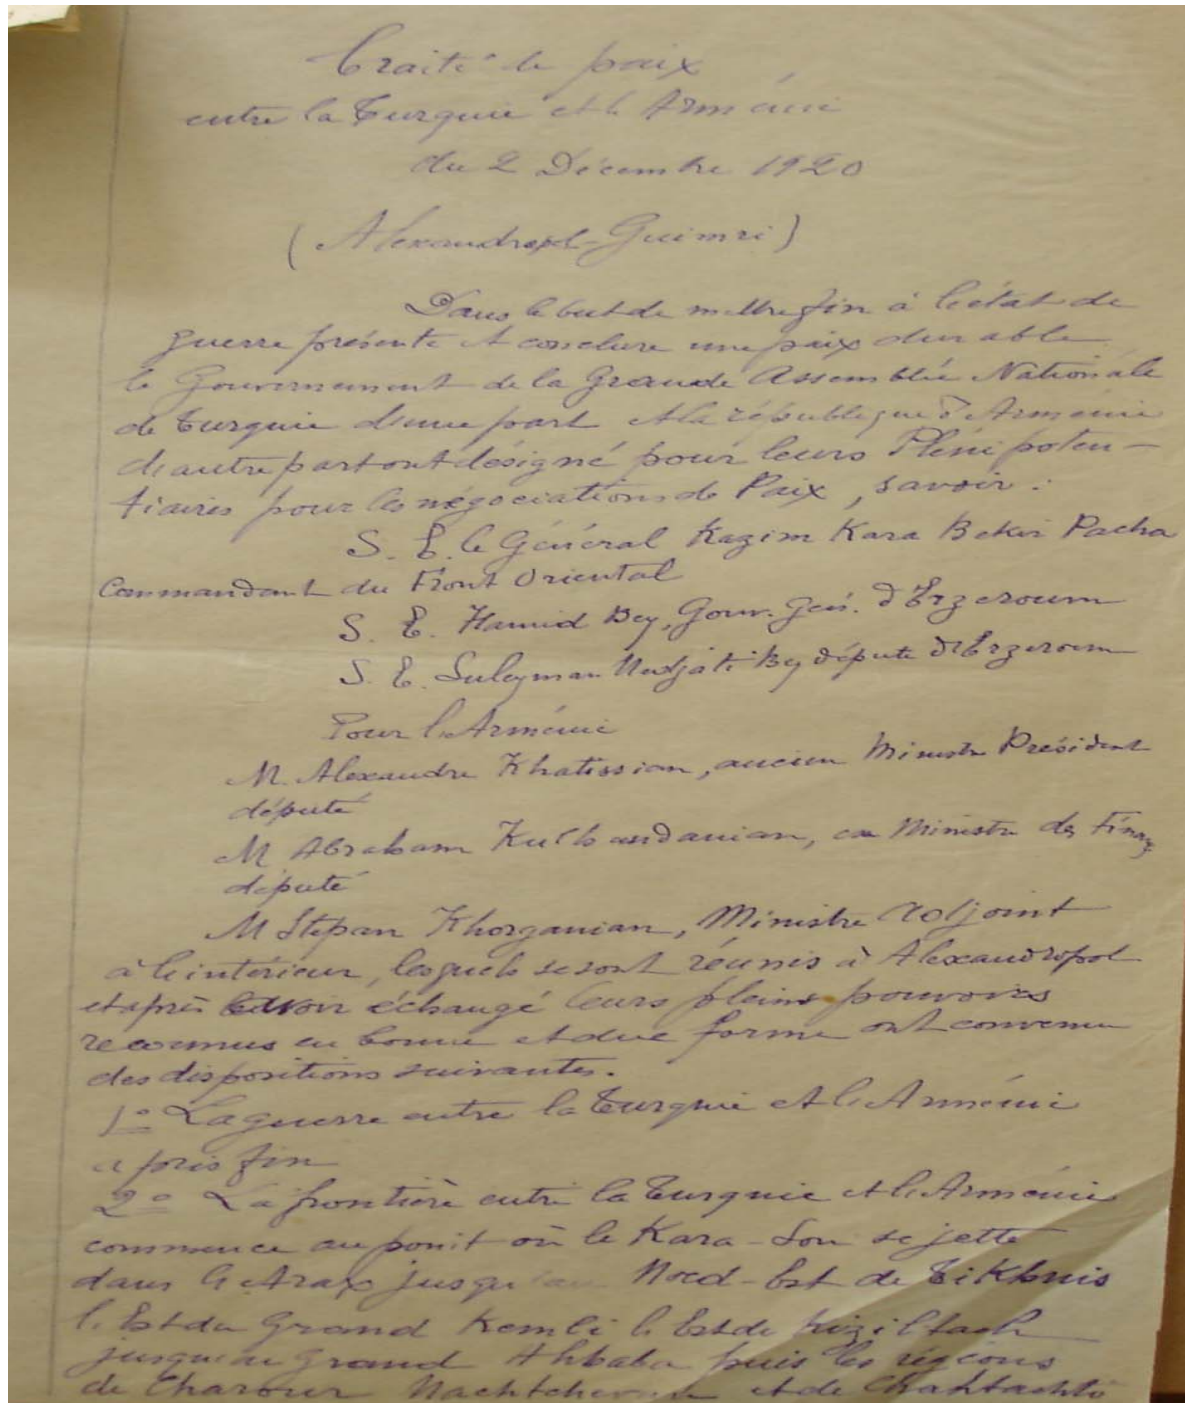 Traité de paix
entre la Turquie et l'Arménie
du 2 Décembre 1920
(Alexandropol-Guimri)
Dans le but de mettre fin à l'état de
guerre présente et conclure une paix durable
le Gouvernement de la Grande Assemblée Nationale
de Turquie d'une part et la république d'Arménie
d'autre part ont désigné pour leurs Plénipoten-
tiaires pour les négociations de Paix, savoir :
S. E. le Général Kazim Kara Bekir Pacha
Commandant du Front Oriental
S. E. Hamid Bey, Gouv. Gén. d'Erzeroum
S. E. Suleyman Nedjati Bey député d'Erzeroum
Pour l'Arménie
M. Alexandre Khatissian, ancien Ministre Président
député
M Abraham Kulkhandanian, ex Ministre des Finances
député
M Stepan Khorganian, Ministre Adjoint
à l'intérieur, lesquels se sont réunis à Alexandropol
et après avoir échangé leurs pleins pouvoirs
reconnus en bonne et due forme ont convenu
des dispositions suivantes.
1° La guerre entre la Turquie et l'Arménie
a pris fin
2° La frontière entre la Turquie et l'Arménie
commence au point où le Kara-Sou se jette
dans l'Arax jusqu'au Nord-Est de Tikhnis
l'Est du Grand Kemli l'Est de Kiziltach
jusqu'au Grand Akbaba puis les régions
de Charour et de Chahtachti